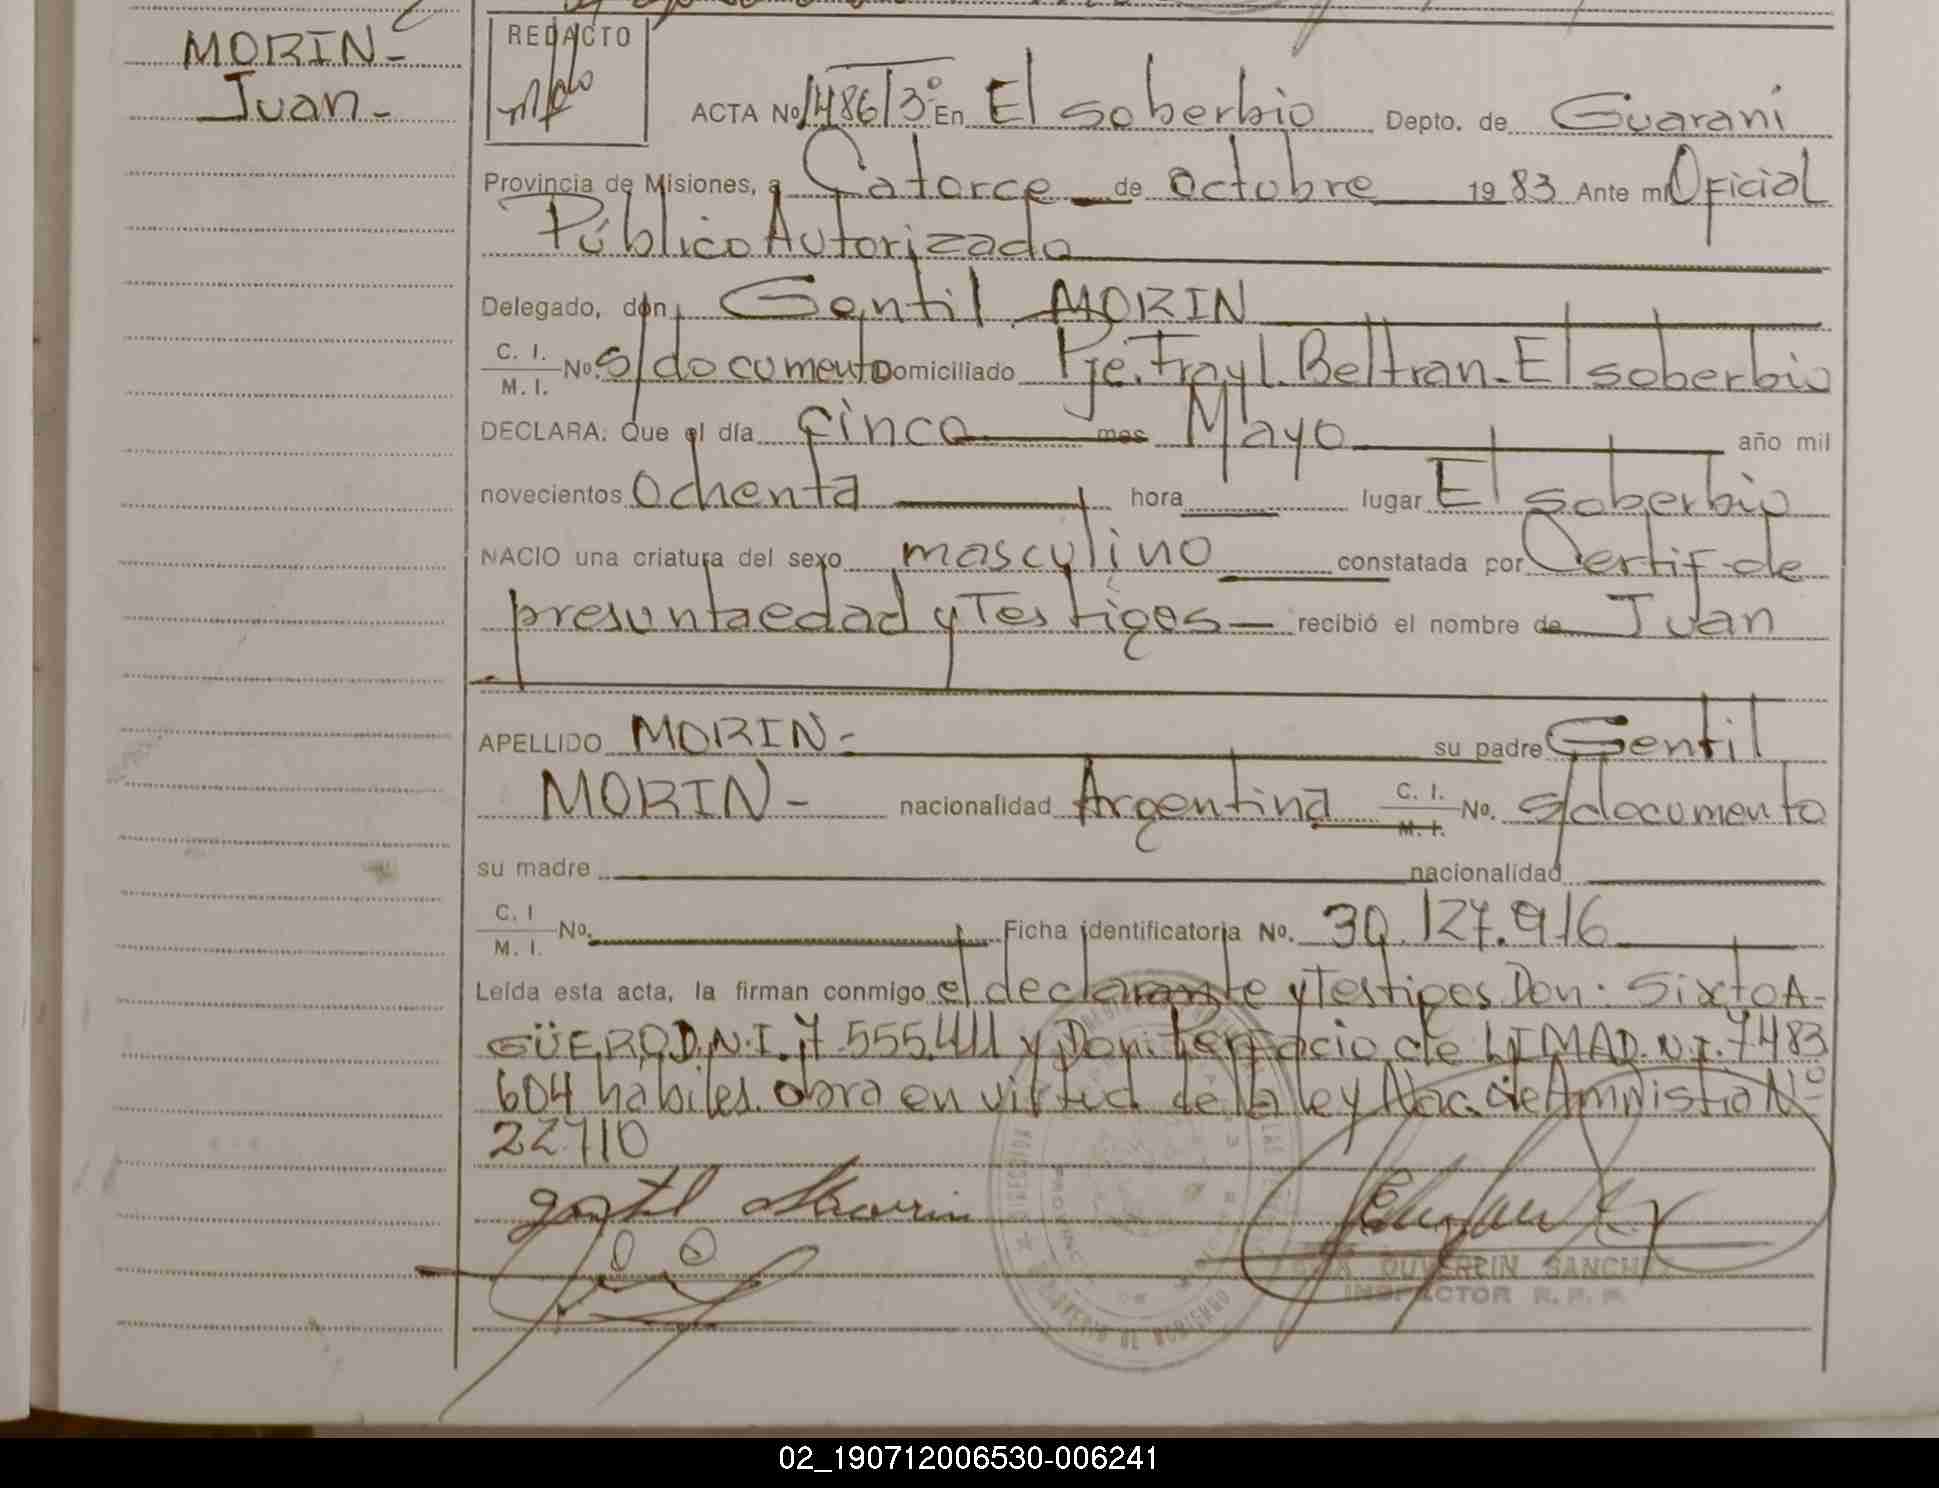 MORIN-
Juan-
REDACTO
ACTA No 1486/3º En El soberbio Depto. de Guaraní
Provincia de Misiones, a Catorce de octubre 1983 Ante mi Oficial
Público Autorizado
Delegado, don Gentil MORIN
C. I.
M. I. No. s/documento Domiciliado Pje. Fray L. Beltran. El soberbio
DECLARA: Que el día cinco mes Mayo año mil
novecientos Ochenta hora lugar El soberbio
NACIO una criatura del sexo masculino constatada por Certif de
presunta edad y Testigos recibió el nombre de Juan
APELLIDO MORIN- su padre Gentil
MORIN- nacionalidad Argentina C. I. M. I. No. s/documento
su madre nacionalidad
C. I
M. I. No. Ficha identificatoria No. 30.127.916
Leída esta acta, la firman conmigo el declarante y Testigos Don: Sixto A-
GÜERO D.N.I. 7.555.411 y Don de LIMA D.N.I. 7483
604 habiles. obra en virtud de la ley Nac. de Amnistia Nº
22.710
gentil Morin
DUVERLIN SANCHEZ
INSPECTOR R. P. P.
02_190712006530-006241